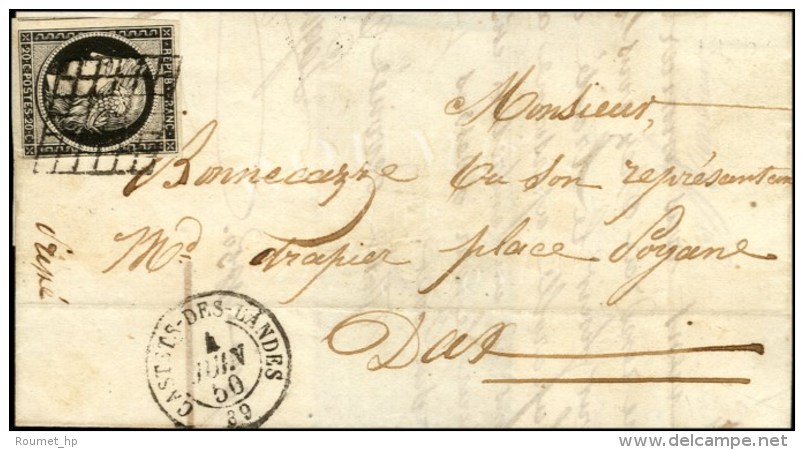 20c POSTES 20c
REPUB. FRANC.
Monsieur,
Bonnecazze ou son représentan
Md. drapier place Poyane
Dax
CASTETS-DES-LANDES
4
JUIN
50
39
Roumet_hp
www.delcampe.net